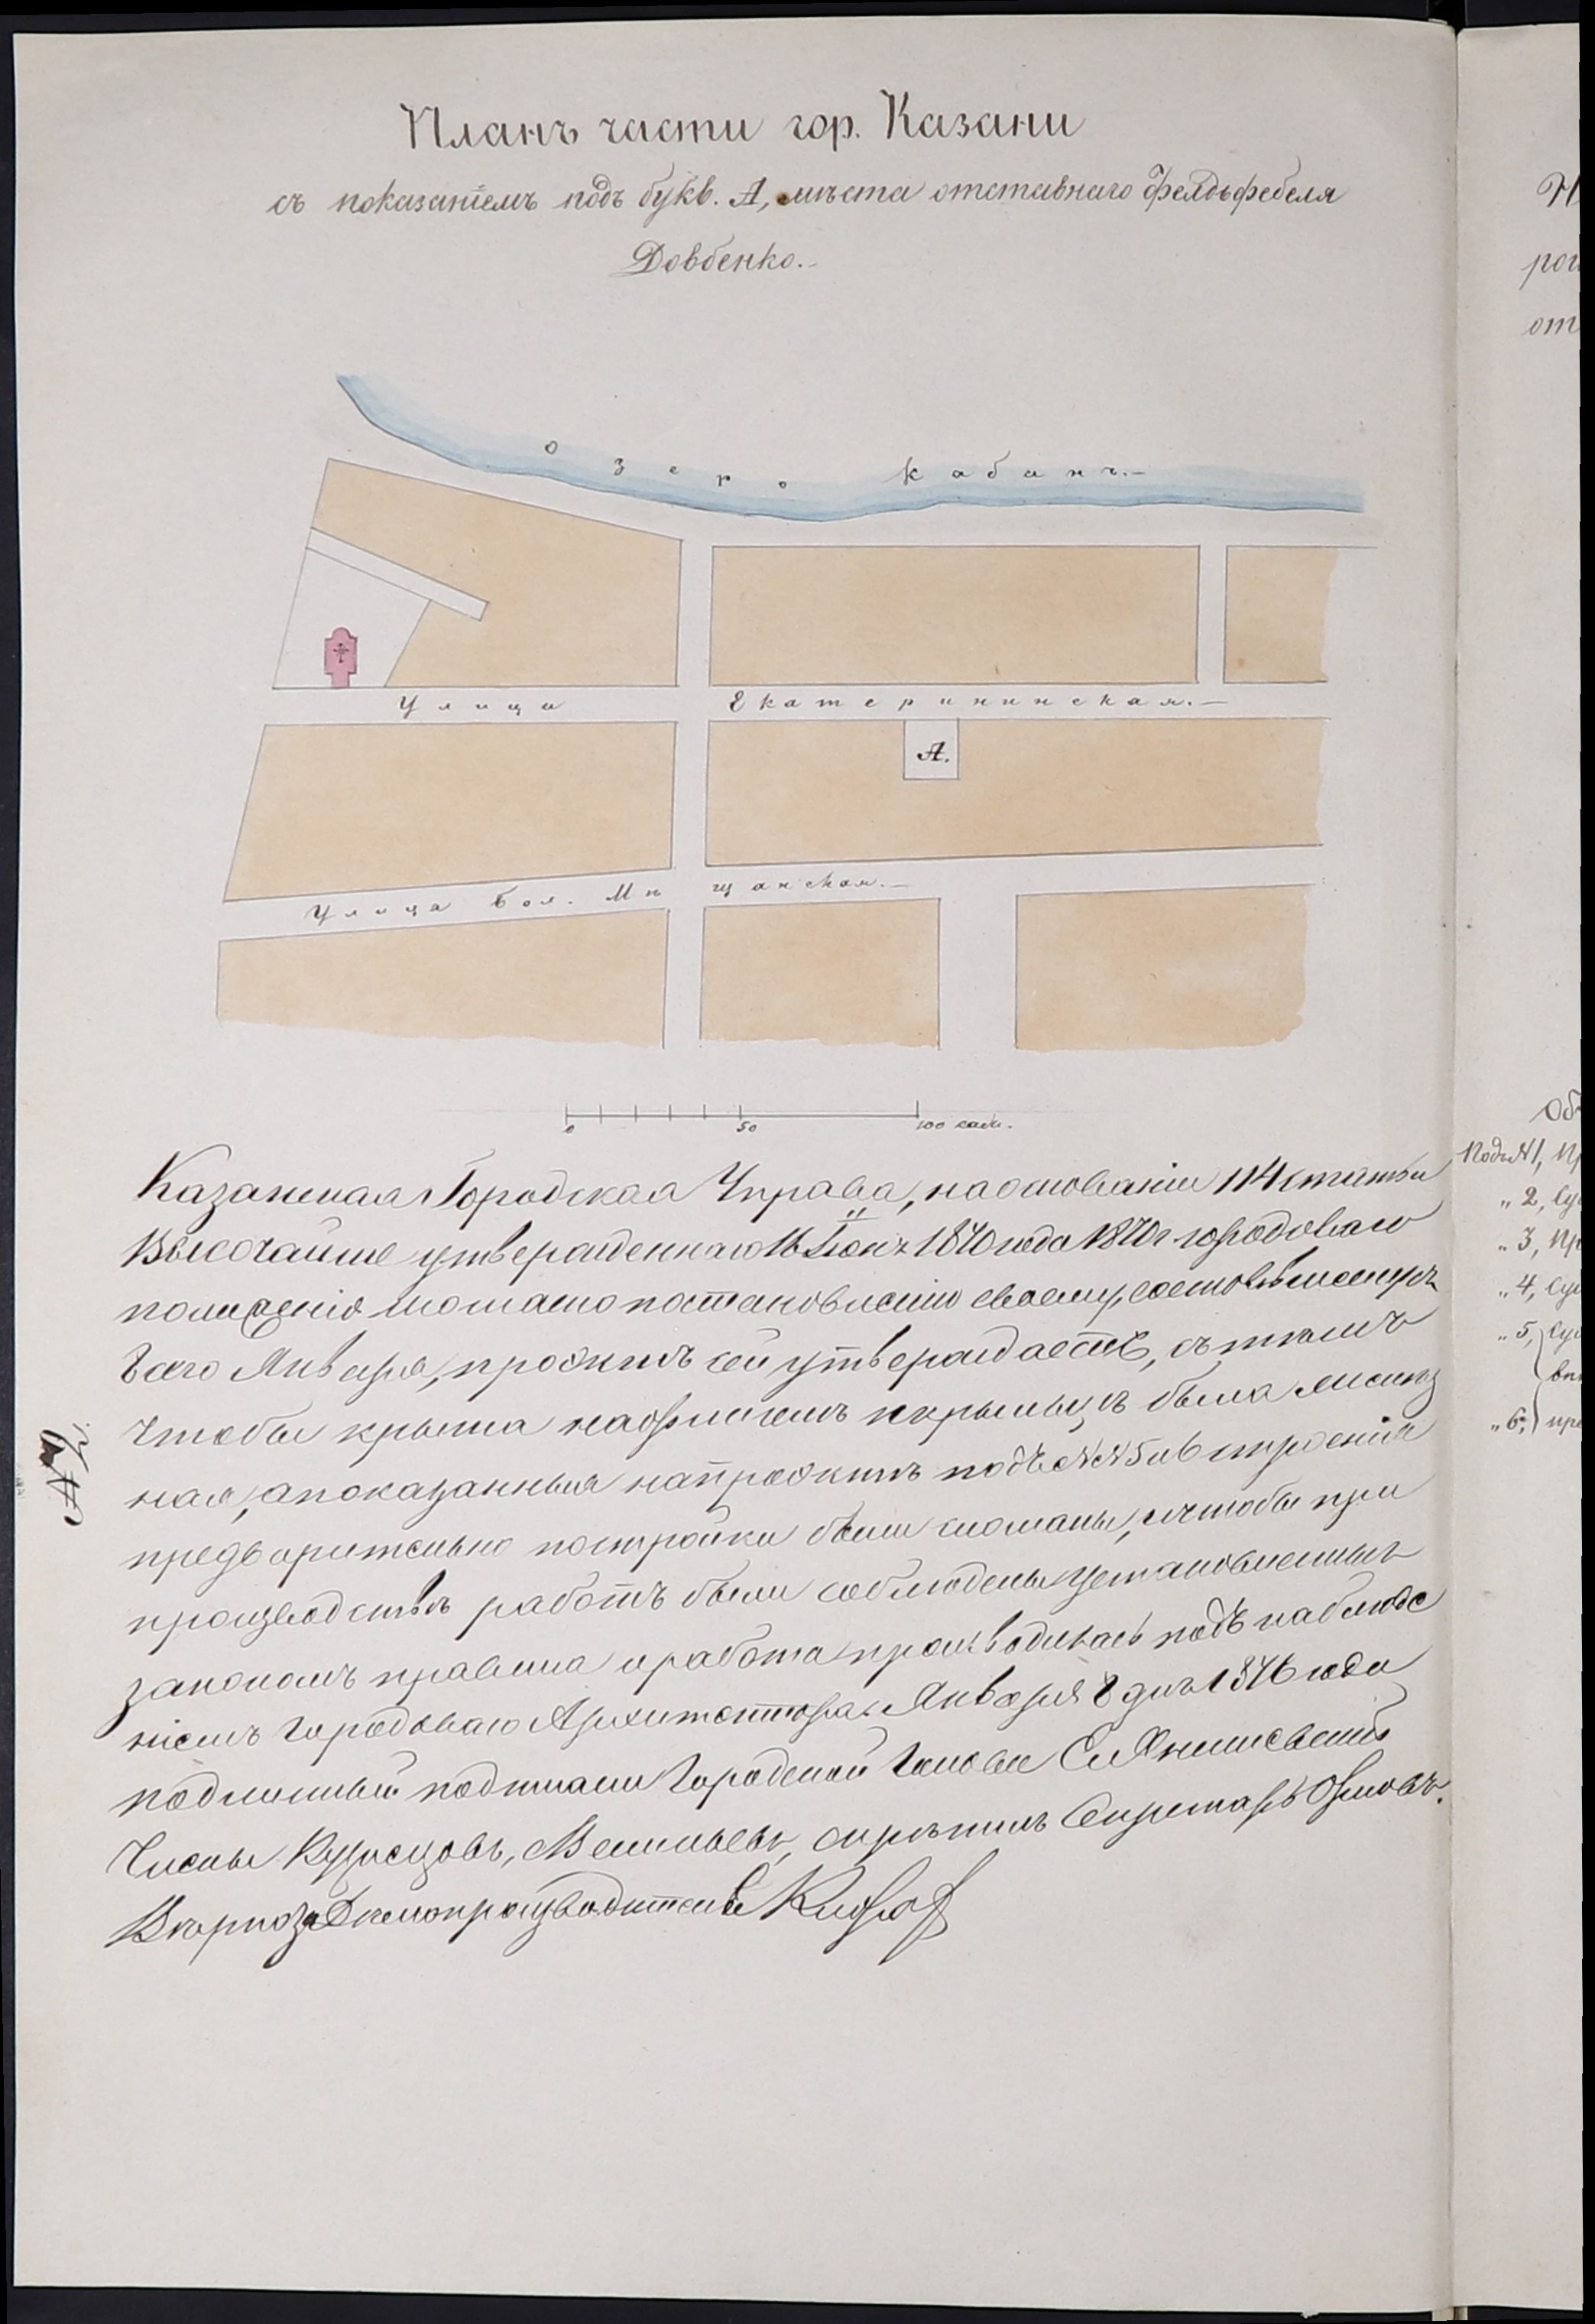 Планъ части гор. Казани
съ показанiемъ подъ букв. А, мѣста отставнаго Фельдфебеля
Довбенко.-
озеро Кабанъ.-
Улица Екатерининская.-
А.
Улица Бол. Мѣщанская.-
0 50 100 саж.
Казанская Городская Управа, на основанiи 114 статьи
Высочайше утвержденнаго 16 Iюня 1870 года городоваго
положенiя согласно постановленiю своему,
сего Января, проэктъ сей утверждаетъ, съ тѣмъ
чтобы крыша на флигелѣ и крыльцѣ была желѣз
ная, а показанныя на проэктѣ подъ №№ 5 и 6 строенiя
предварительно постройки были сломаны, и чтобы при
производствѣ работъ были соблюдены установленныя
закономъ правила и работа производилась подъ наблюде
нiемъ Городоваго Архитектора. Января 8 дня 1876 года
подлинный подписали Городской Голова
Члены Кузнецовъ, скрѣпилъ Секретарь
Вѣрно: За Дѣлопроизводителя
Н
рог
от
Об
Подъ №1, Пр
„ 2, Су
„ 3, Пр
„ 4, Су
„ 5, Су
вн
„ 6, пре